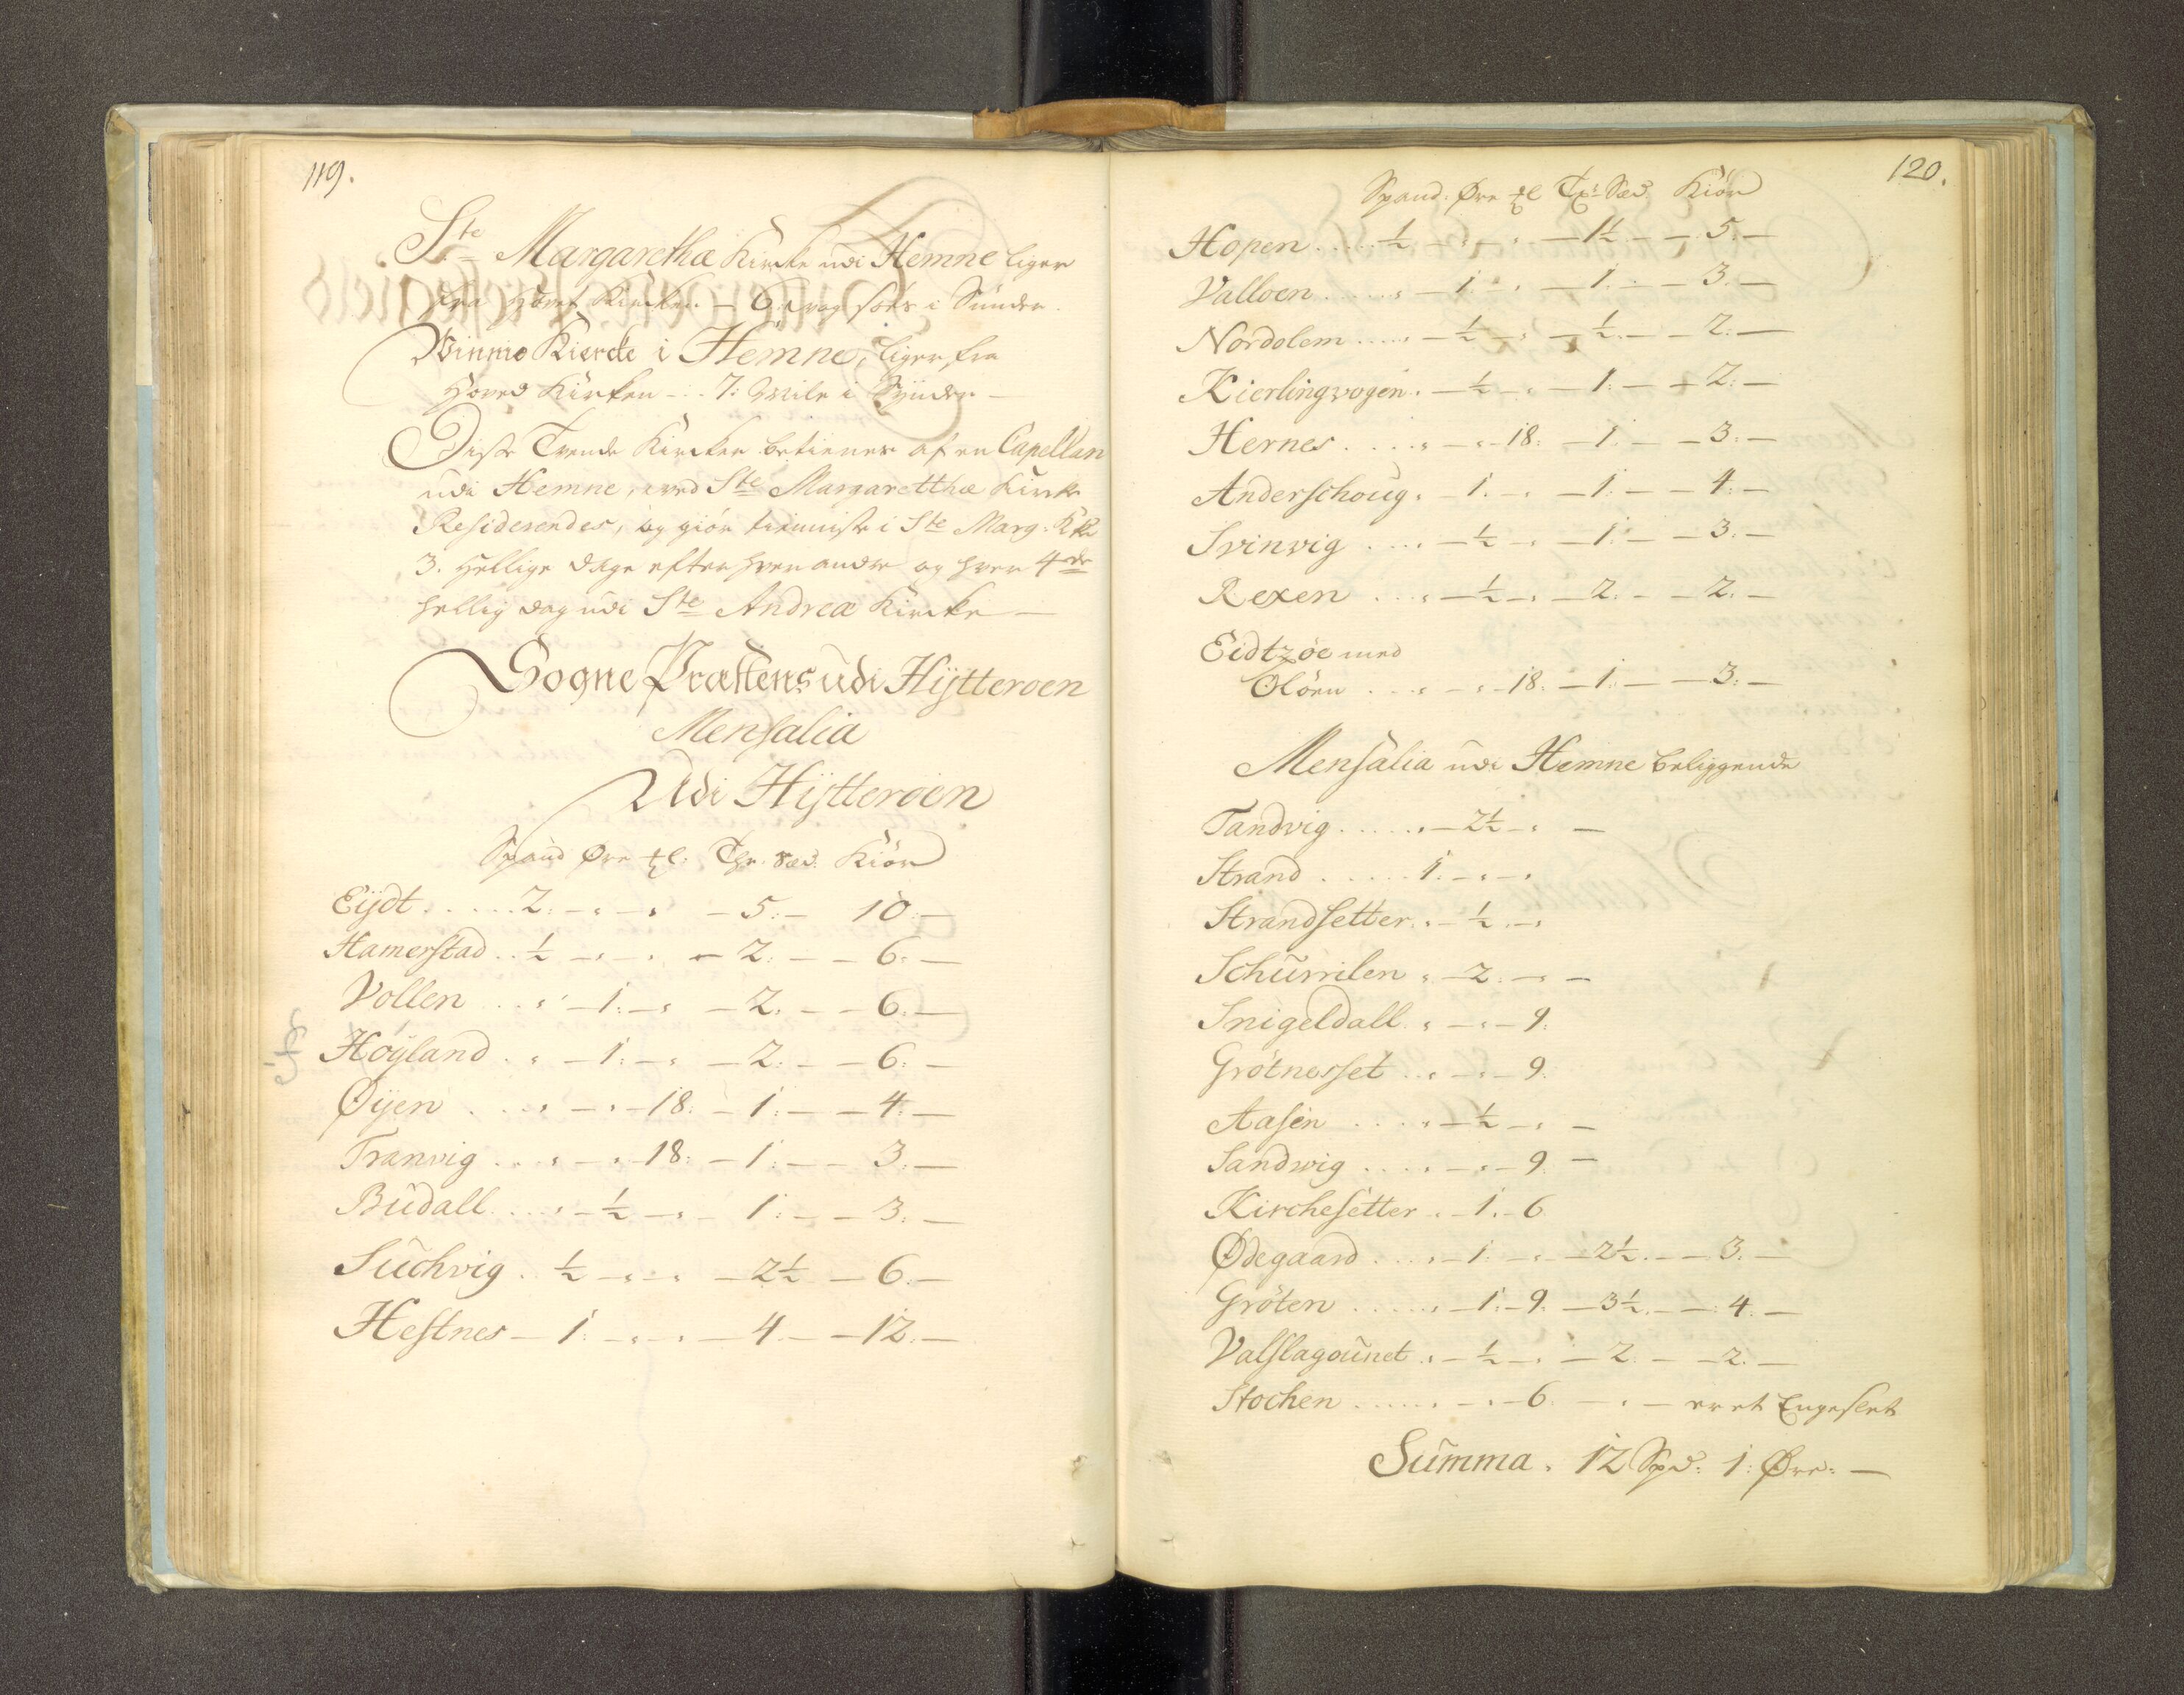 119.
Ste Margarethæ Kircke udi Hemne liger
fra Hoved Kircken - 6: søes i Sünder.
Winnie Kiercke i Hemne, liger fra
Hoved Kircken - 7: Mile i Sÿnder -
Disse Trende Kircker betienes af en Capellan
udi Hemne, ved Ste Margaretthæ Kircke
Residerendes, og giør tienniste i Ste Marg: Kke
3. Hellige dage efter hverandre og hver 4de
hellig dag udi Ste Andreæ Kircke -
Sogne Præstens udi Hÿtteroen
Mensalia
Udi Hÿtteroen
Spand Øre Thr. Sæd. Kiør
Eÿdt ..... 2: - " - " - 5: - 10: -
Hamerstad .. ½ - " - " - 2: - - 6: -
Vollen ... " - 1: - " - 2: - - 6: -
Høÿland . " - 1: - " - 2: - - 6: -
Øÿen .... " - " - 18: - 1: - - 4: -
Tranvig .... " - " - 18: - 1: - - 3: -
Büdall .... " - ½ - " - 1: - - 3: -
Süchvig .. ½ - " - " - 2½ - 6: -
Hestnes - 1: - " - " - 4: - - 12: -
120.
Spand: Øre Sæd. Kiør
Hopen ..... ½ - " - " - 1½ - - 5: -
Valloen ..... " - 1: - " - 1: - - 3: -
Nordolem ..... " - ½ - " - ½ - - 2: -
Kierlingvogen . - ½ - " - 1: - - 2: -
Hernes ..... " - " - 18: - 1: - - 3: -
Anderschoug " - 1. - " - 1: - - 4: -
Svinvig .... " - ½ - " - 1: - - 3: -
Rexen .... " - ½ - " - 2: - - 2: -
Eidtzøe med
Oløen .... " - " - 18: - 1: - - 3: -
Mensalia udi Hemne beliggende
Tandvig ..... " - 2½ - " -
Strand ..... 1. - " - "
Strandsetter . " - ½ - "
Schürrilen " - 2: - " -
Snigeldall " - " - 9:
Grøtnesset .. " - " - 9.
Aasen .... " - ½ - " -
Sandwig .... " - " - 9. -
Kirchesetter " - 1. - 6
Ødegaard .... " - 1: - " - 2½ - - 3: -
Grøten ..... " - 1: - 9: - 3½ - - 4: -
Valslagoünet " - ½ - " - 2: - - 2: -
Stochen ..... " - " - 6. - " - er et Engeslet
Sümma. 12 Spd: 1: Øre: -